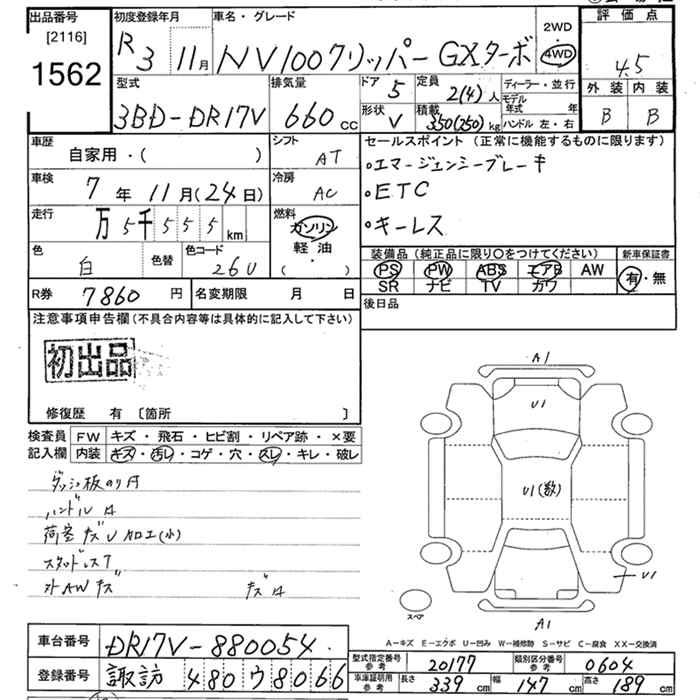 出品番号 初度登録年月 車名・グレード 2WD・4WD 評価点
[2116] R3 11月 NV100クリッパー GXターボ 4.5
1562
型式 排気量 ドア 5 定員 2(4)人 ディーラー・並行 外装 内装
3BD-DR17V 660cc 形状 V 積載 350(250)kg モデル年式 年 B B
ハンドル 左・右
車歴 シフト セールスポイント (正常に機能するものに限ります)
自家用・( ) AT ・エマージェンシーブレーキ
車検 7年11月(24日) 冷房 AC ・ETC
走行 万5千555km 燃料 ガソリン ・キーレス
軽油
( ・ )
色 白 色替 色コード 26U
装備品 (純正品に限り〇をつけてください) 新車保証書
PS PW ABS エアB AW 有・無
SR ナビ TV カワ
R券 7860円 名変期限 月 日 後日品
注意事項申告欄(不具合内容等は具体的に記入して下さい)
初出品
修復歴 有 〔箇所 〕
検査員 FW キズ・飛石・ヒビ割・リペア跡・×要
記入欄 内装 キズ・汚レ・コゲ・穴・スレ・キレ・破レ
ダッシュ板のり
ハンドル
荷室 キズ 加工(小)
スタッドレス
AWキズ
A1
U1
U1(数)
U1
スペア
A1
A-キズ E-エクボ U-凹み W-補修跡 S-サビ C-腐食 XX-交換済
車台番号 DR17V-880054
登録番号 諏訪 480 ウ 8066
型式指定番号 参考 20177 類別区分番号 参考 0604
車庫証明用 参考 長さ 339cm 幅 147cm 高さ 189cm